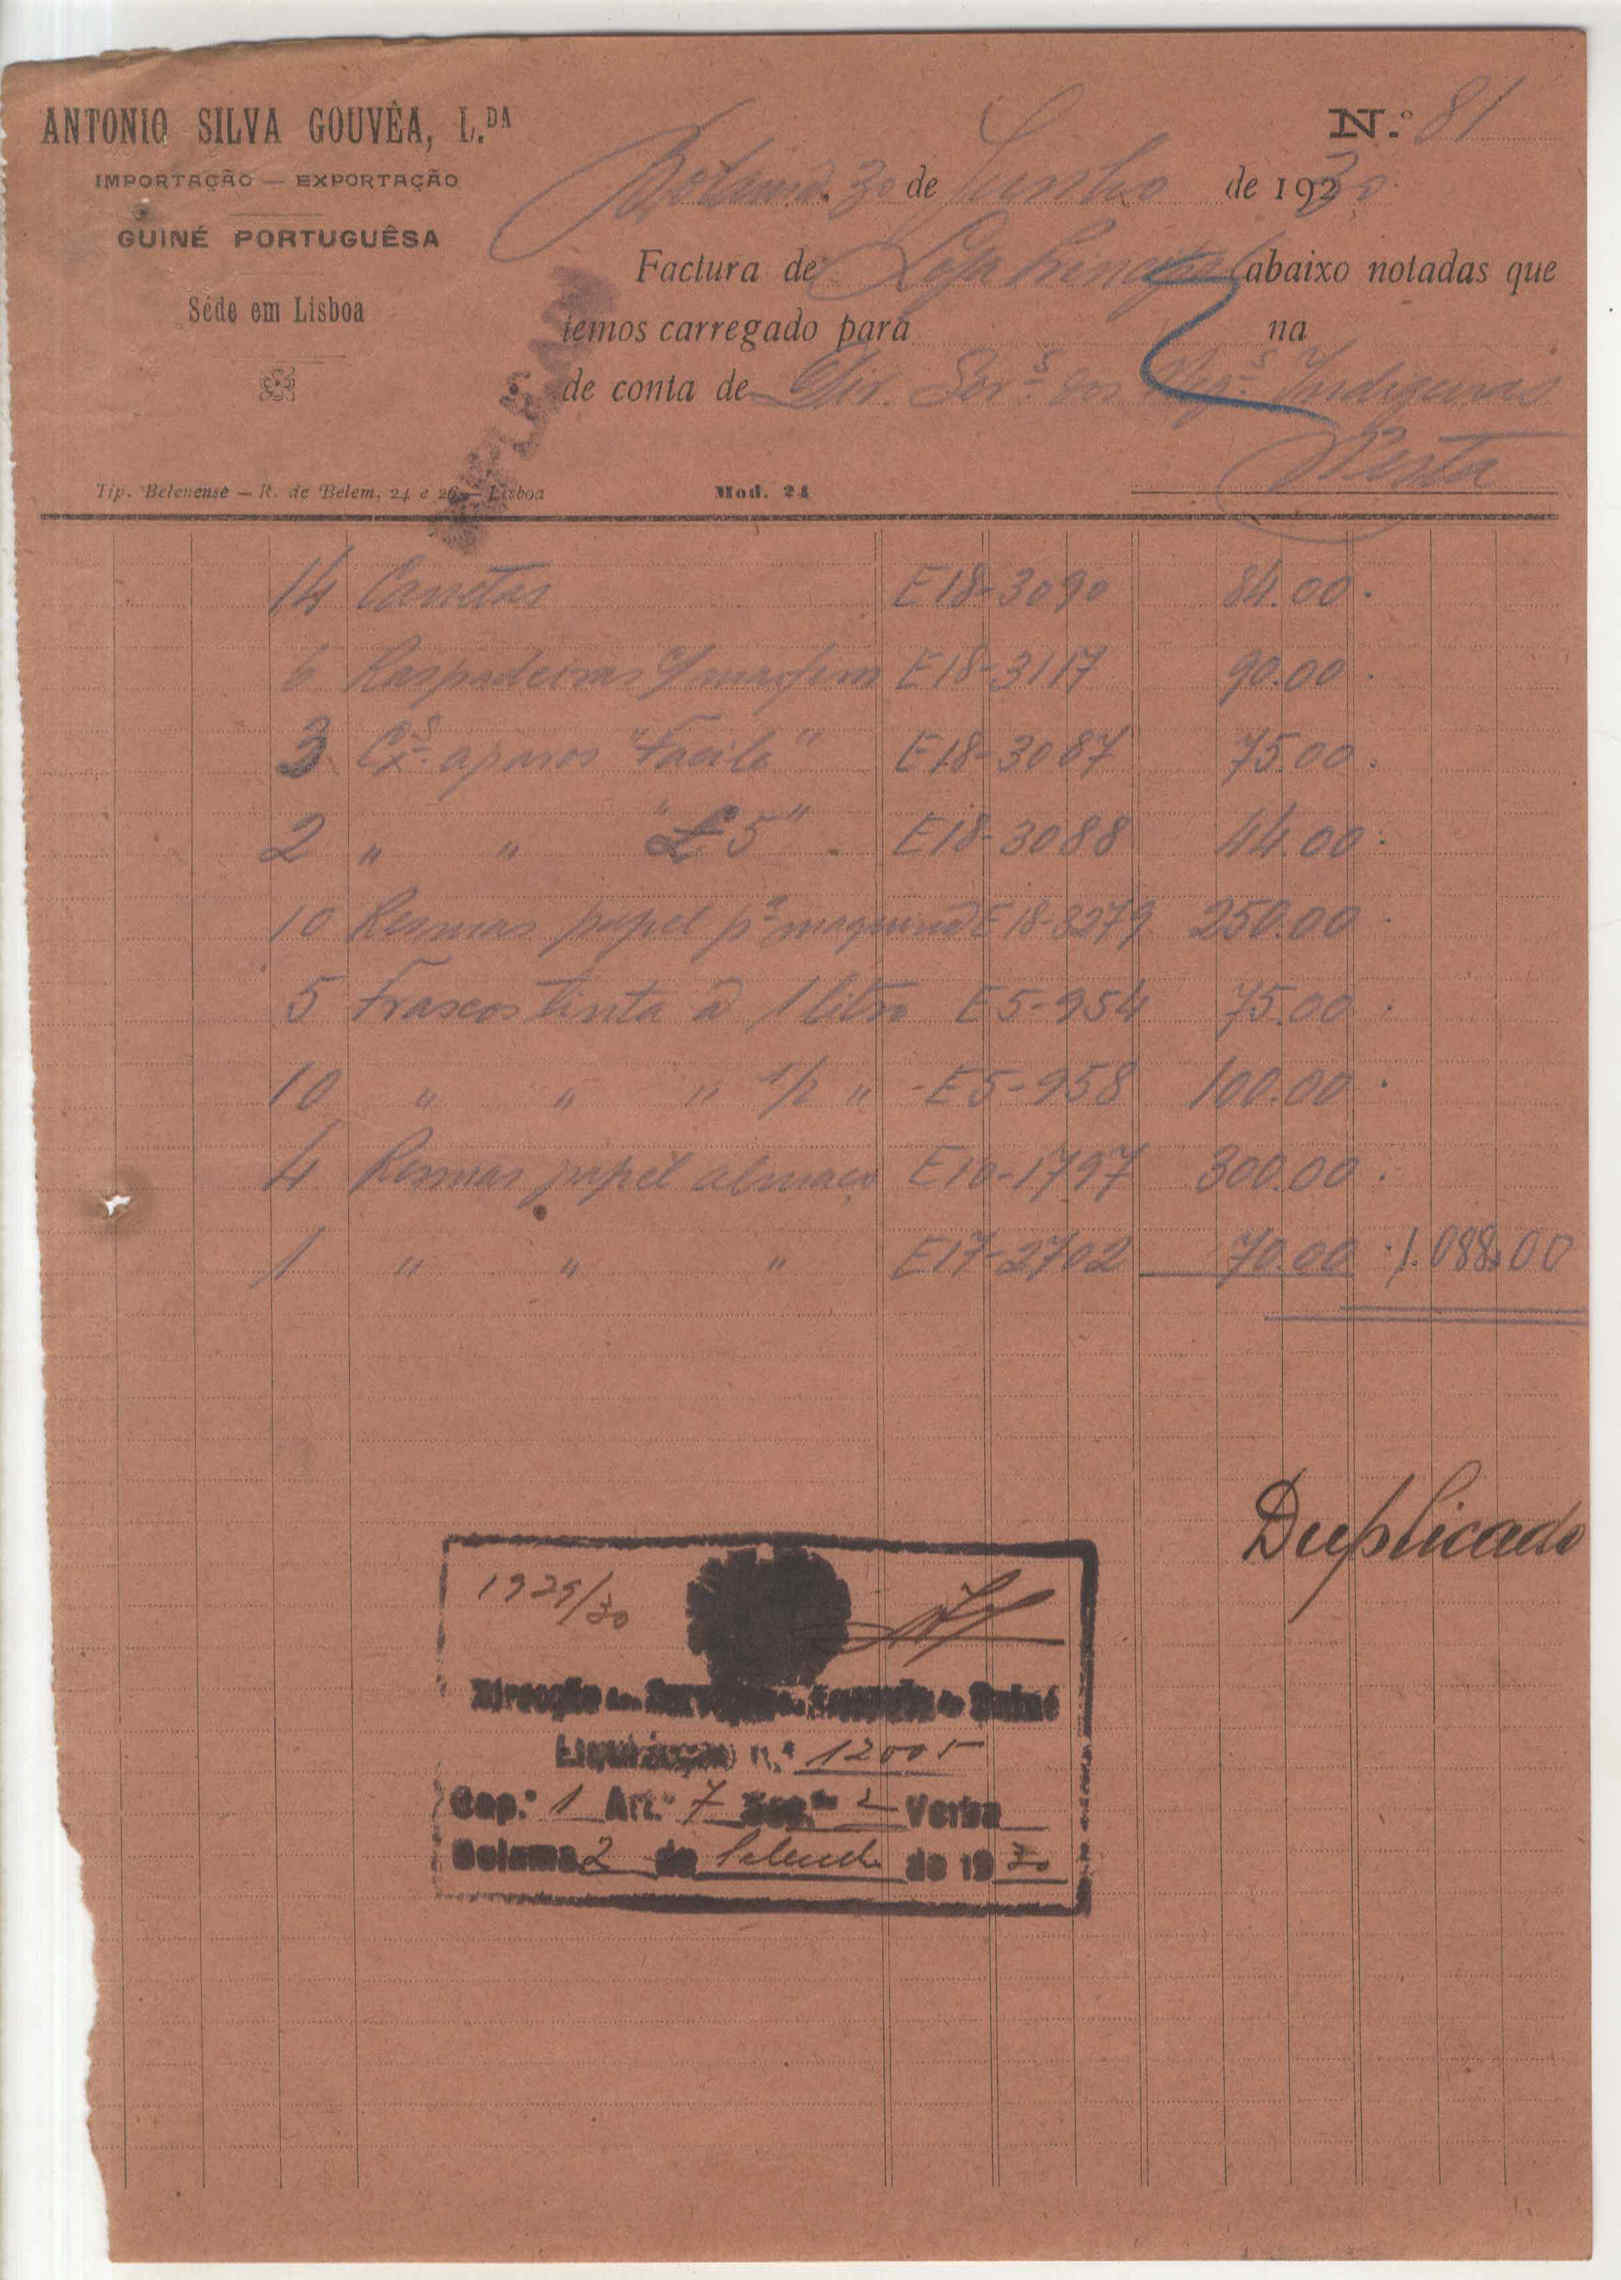 ANTONIO SILVA GOUVÊA, L.DA
IMPORTAÇÃO — EXPORTAÇÃO
GUINÉ PORTUGUÊSA
Séde em Lisboa
N.º 81
Bolama, 30 de Junho de 1930
Factura de abaixo notadas que
temos carregado para na
de conta de Dir. Ser.s dos Neg.s Indigenas
Nesta
Tip. Belenense — R. de Belem, 24 e 26 — Lisboa Mod. 24
14 Canetas E18-3090 84.00
6 Raspadeiras c/ marfim E18-3117 90.00
3 Cx.s aparos "Facile" E18-3087 75.00
2 " " "£5" E18-3088 44.00
10 Resmas papel p.ª maquina E18-3279 250.00
5 Frascos tinta a 1 litro E5-954 75.00
10 " " " 1/2 " E5-958 100.00
4 Resmas papel almaço E10-1797 300.00
1 " " " E17-2702 70.00 1.088.00
Duplicado
1929/30
Direcção dos Serviços de Fazenda da Guiné
Liquidação n.º 12005
Cap.º 1 Art.º 7 2 Verba
Bolama 2 de Setembro de 1930